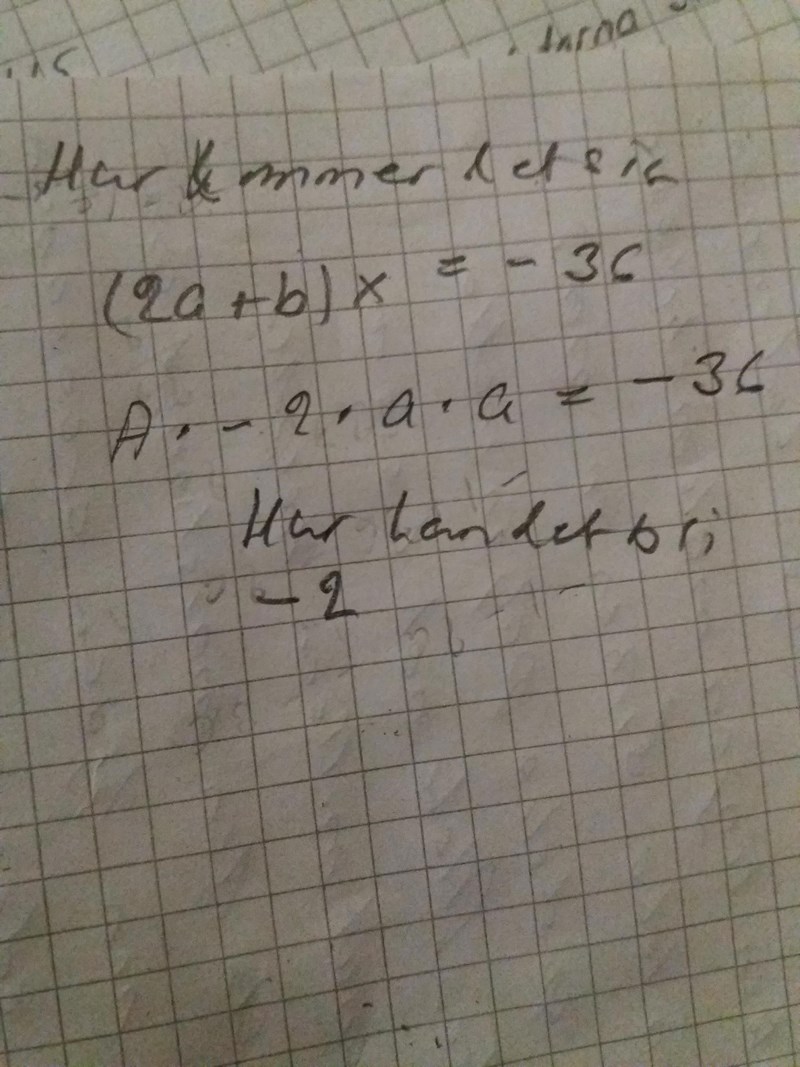 Hur kommer det sig
(2a+b)x = -36
A · -2 · a · a = -36
Hur kan det bri
-2